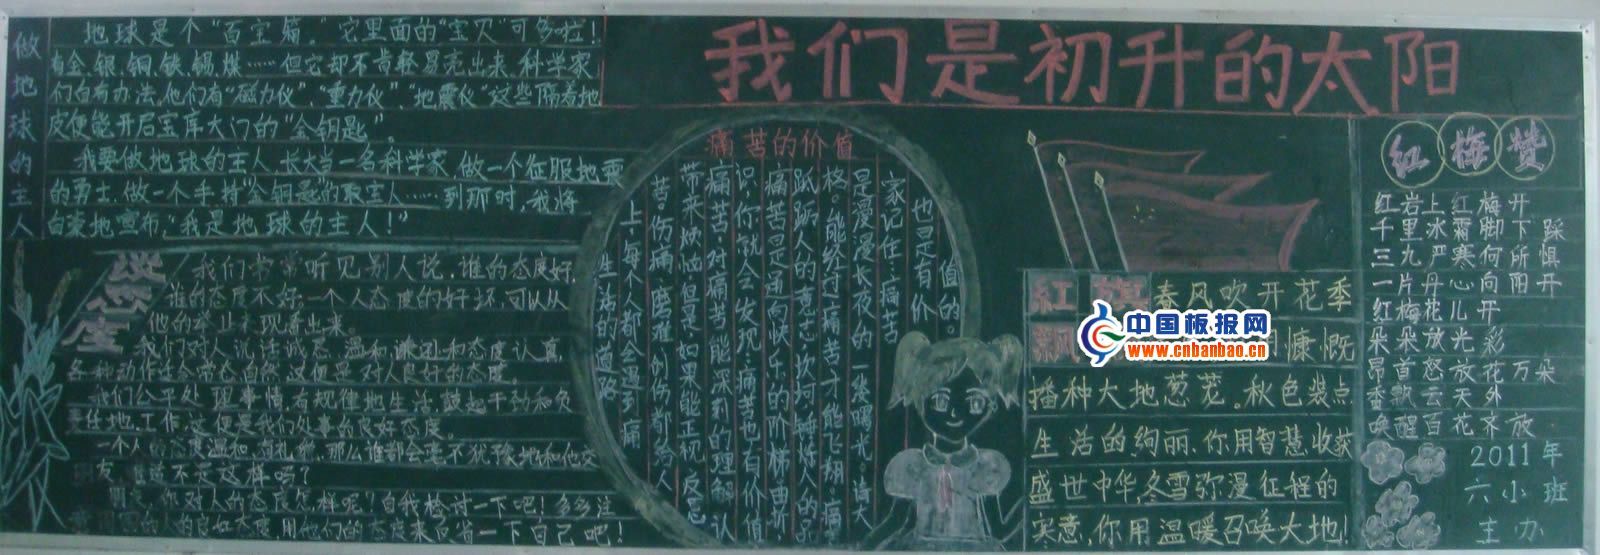 我们是初升的太阳
做地球的主人
地球是个“百宝箱”。它里面的“宝贝”可多啦！
有金、银、铜、铁、锡、煤……但它却不肯轻易亮出来,科学家
们自有办法,他们有“磁力仪”、“重力仪”、“地震仪”这些隔着地
皮便能开启宝库大门的“金钥匙”。
我要做地球的主人,长大当一名科学家,做一个征服地震
的勇士,做一个手持“金钥匙的取宝人……到那时,我将
自豪地宣布,“我是地球的主人！”
我们常常听见别人说,谁的态度好,
谁的态度不好,一个人态度的好坏,可以从
他的举止表现看出来。
我们对人说话诚实、温和、谦逊和态度认真
各种动作
这便是对人良好的态度。
我们公平处理事情,有规律地生活,鼓起干劲和负
责任地工作,这便是我们处事的良好态度。
一个人态度温和、有礼貌,那么谁都会毫不犹豫地和他交
友,谁说不是这样吗？
朋友,你对人的态度怎样呢？自我检讨一下吧！多多注
意周围的人的良好态度,用他们的态度来反省一下自己吧！
痛苦的价值
生活的道路
上,每个人都会遇到痛
苦。伤痛、磨难、创伤都给人
带来烦恼,但是,如果能正视、反思
痛苦,对痛苦能深刻的理解认
识,你就会发现,痛苦也有价值,
痛苦是通向快乐的阶梯。曲折,
跃跃人的意志,坎坷,锤炼人的品
格。能经过痛苦,才能飞翔。痛苦
是漫漫长夜的一缕曙光。请大
家记住：痛苦
也是有价
值的。
红旗
春风吹开花季
慷慨
播种大地葱茏。秋色装点
生活的绚丽,你用智慧收获
盛世中华,冬雪弥漫征程的
寒意,你用温暖召唤大地！
红梅赞
红岩上红梅开
千里冰霜脚下踩
三九严寒何所惧
一片丹心向阳开
红梅花儿开
朵朵放光彩
昂首怒放花万朵
香飘云天外
唤醒百花齐放
2011年
六小班
主办
中国板报网
www.cnbanbao.cn